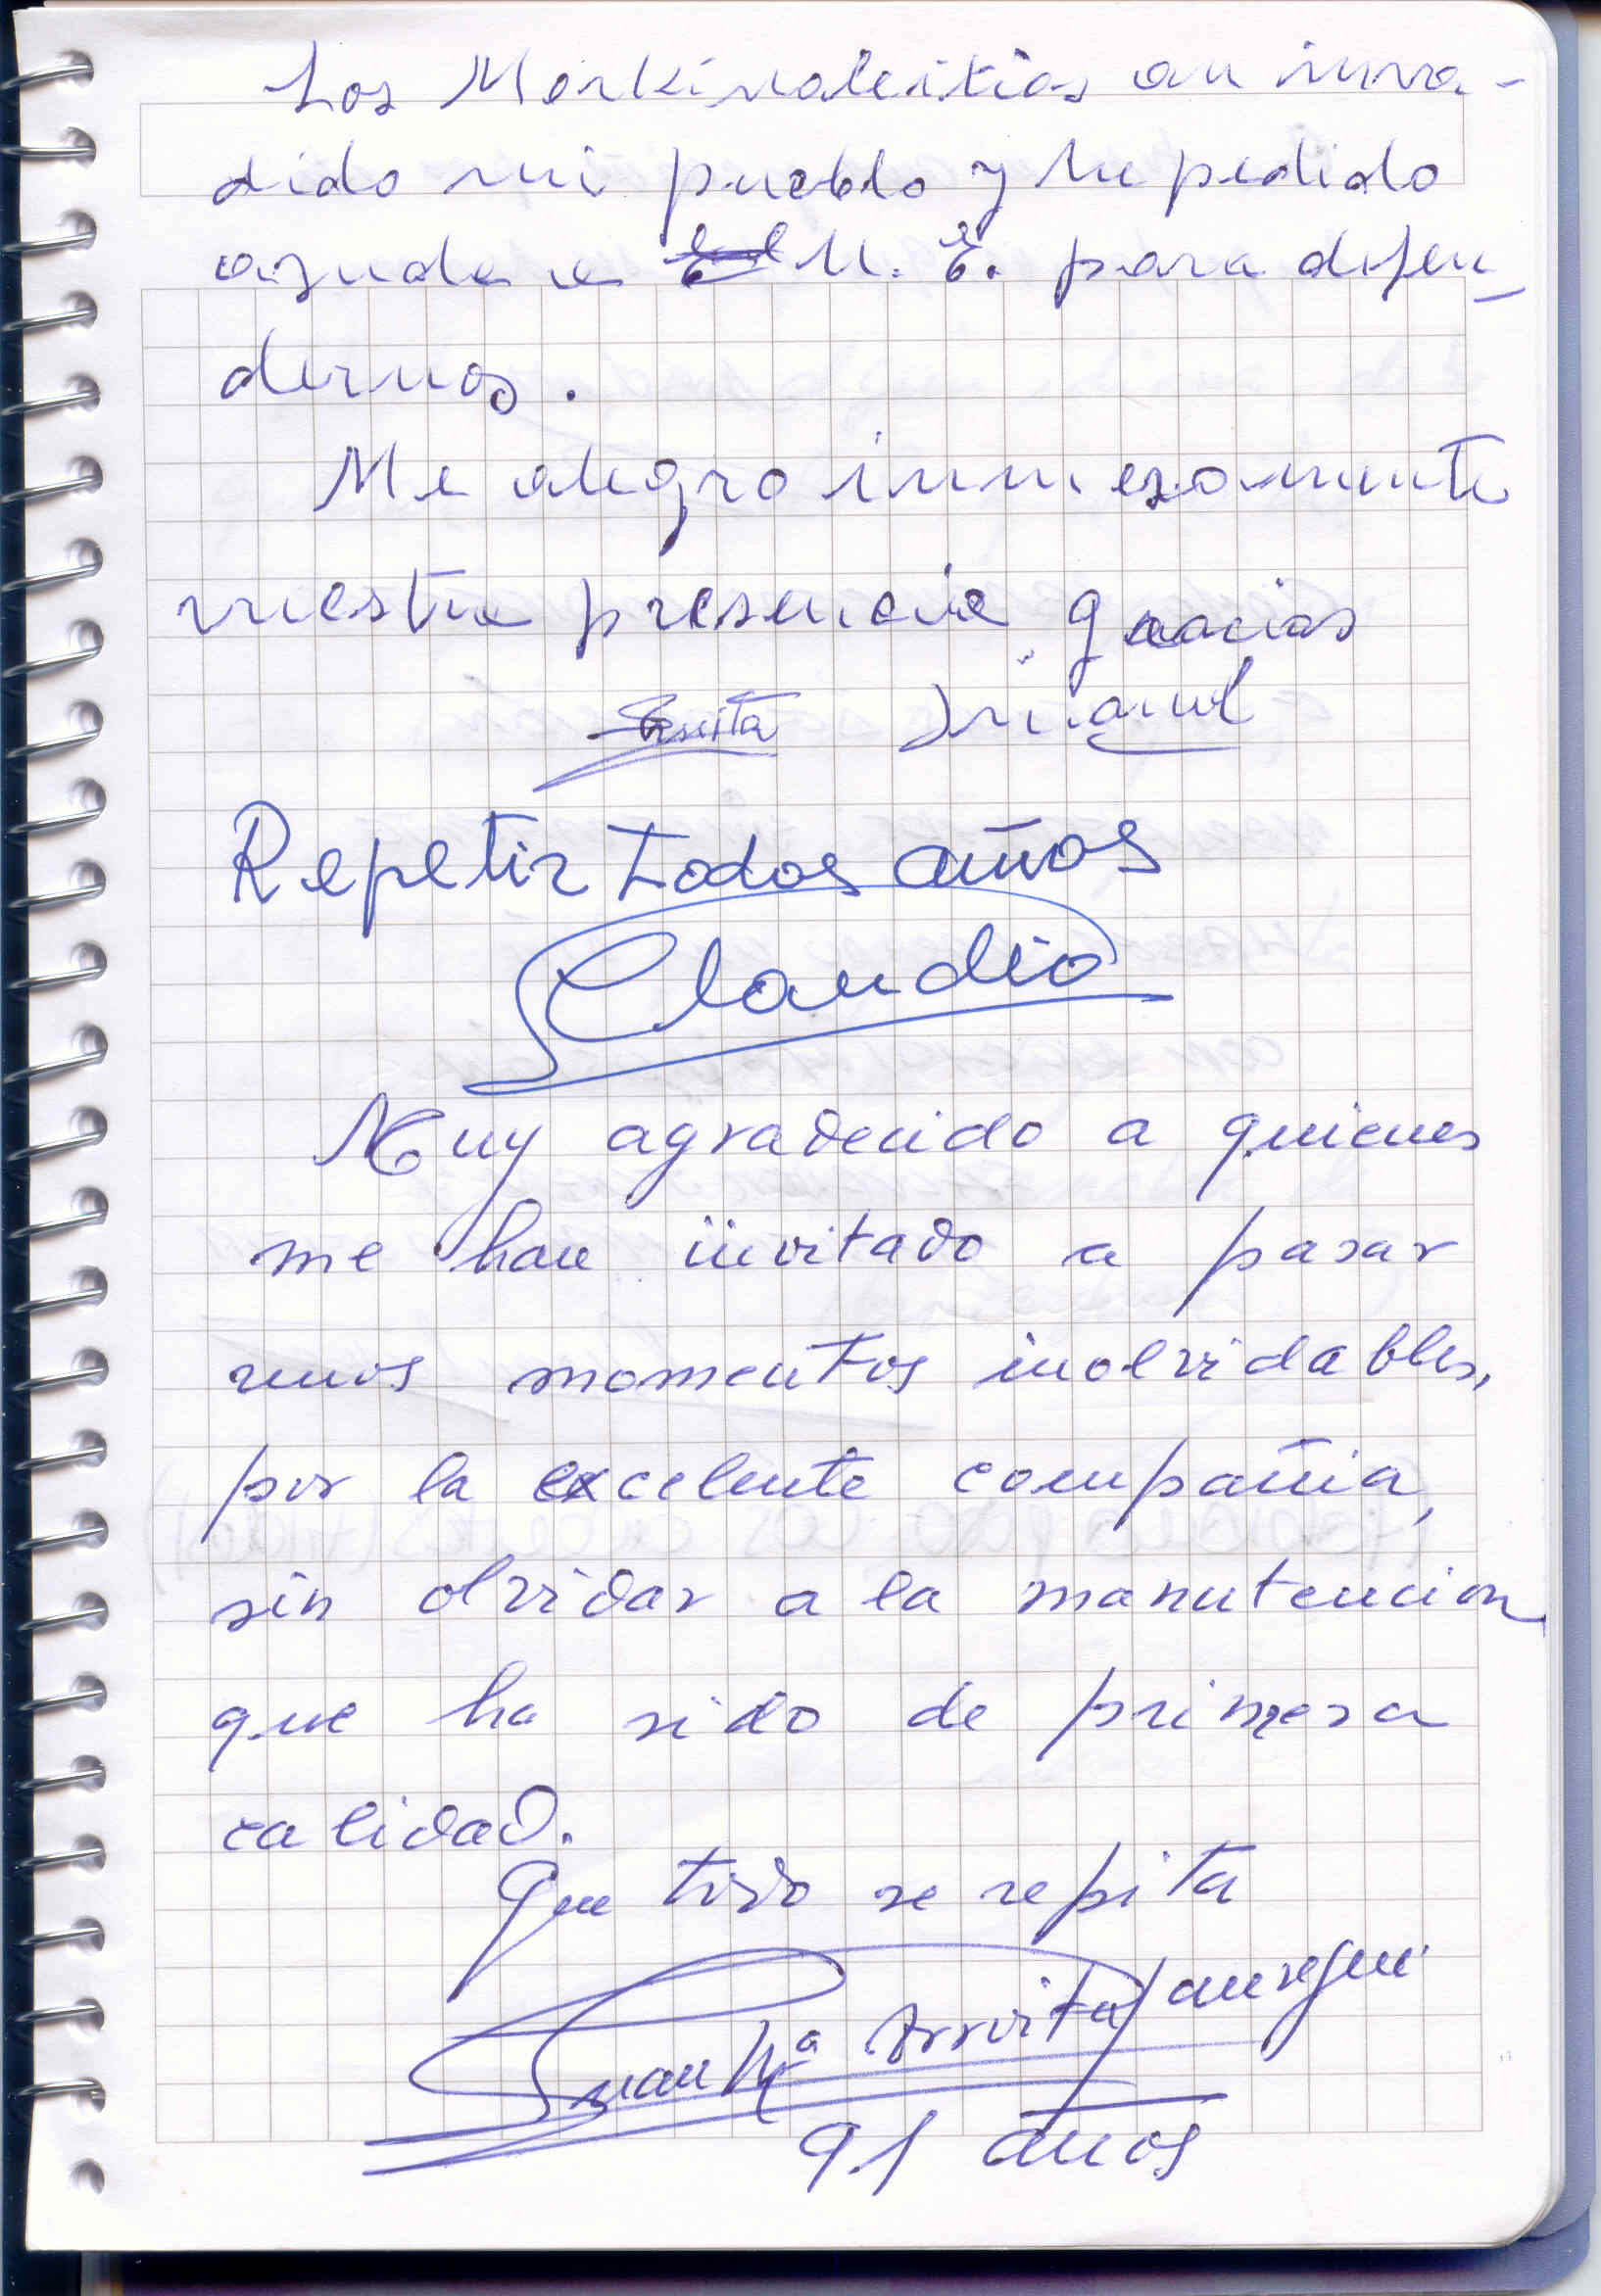 Los Merkinaleitias an inva-
dido mi pueblo y he pedido
ayuda a M. E. para defen-
dernos.
Me alegro inmesamente
vuestra presencia. gracias
Repetir todos años
Claudio
Muy agradecido a quienes
me han invitado a pasar
unos momentos inolvidables,
por la excelente compañia,
sin olvidar a la manutencion
que ha sido de primera
calidad.
Que todo se repita
Juan Mª Arruita Jauregui
91 años